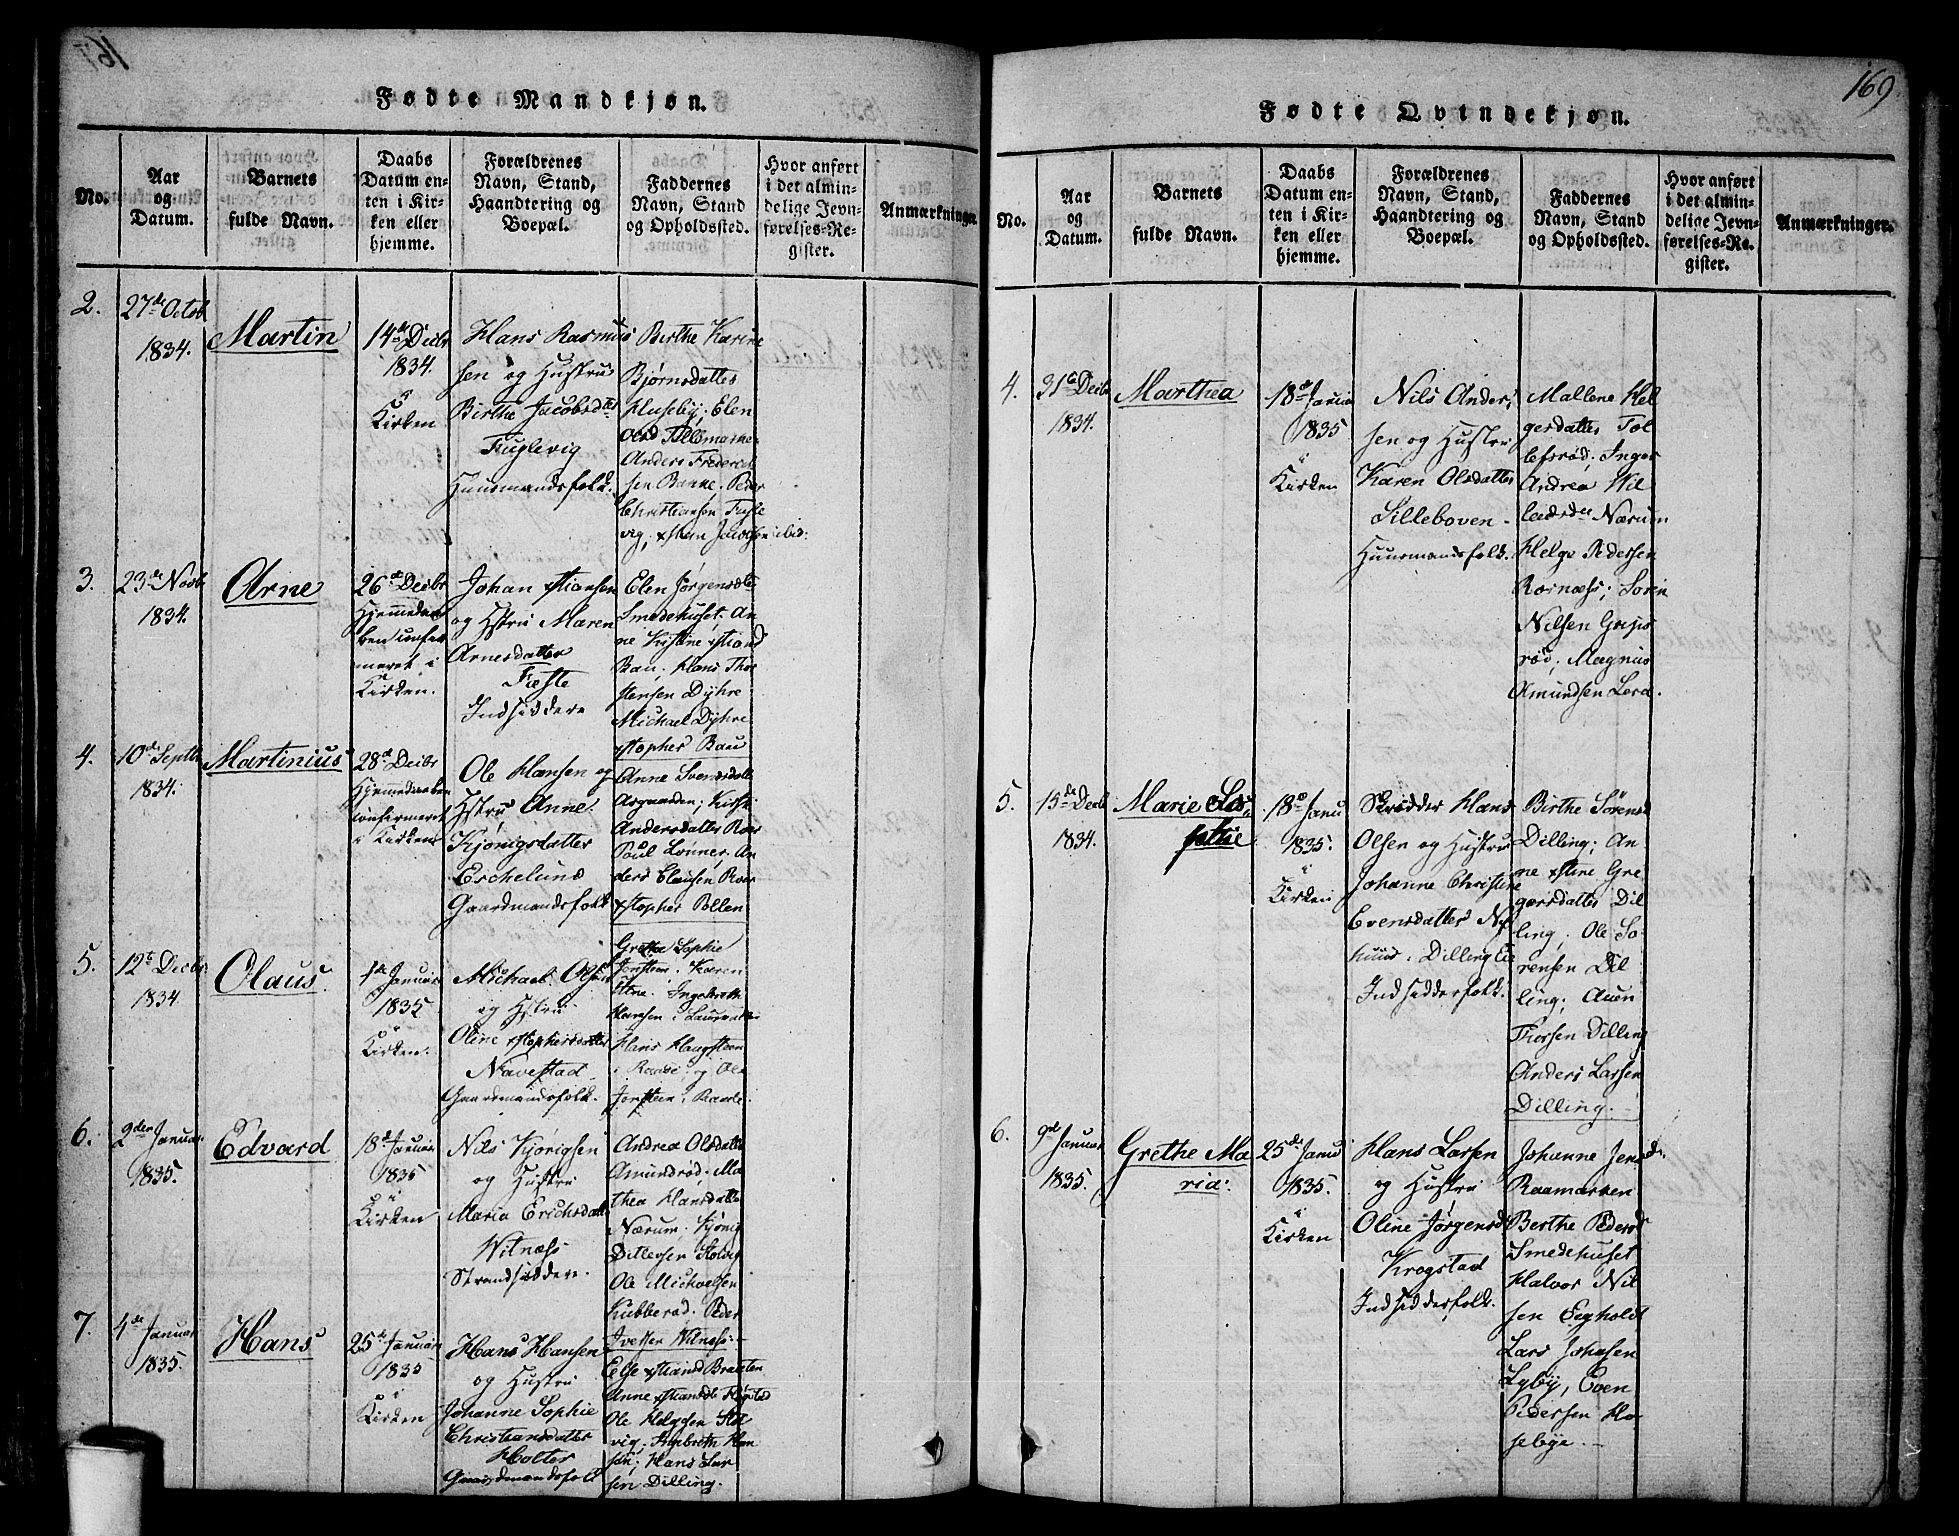 169
Fødte Mandkjøn.
No.
Aar
og
Datum.
Barnets
fulde Navn.
Daabs
Datum en-
ten i Kir-
ken eller
hjemme.
Forældrenes
Navn, Stand,
Haandtering og
Boepæl.
Faddernes
Navn, Stand
og Opholdssted.
Hvor anført
i det almin-
delige Jevn-
førelses-Re-
gister.
Anmærkninger.
2.
27de Octob
1834.
Martin
14de Decbr
1834.
i
Kirken
Hans Rasmus
sen og Hustru
Birthe Jacobsdtr
Fuglevig
Huusmandsfolk.
Birthe Karine
Bjørnsdatter
Huseby; Elen
Anders Frederik
sen Bakke. Peder
Christiansen Fugle
vig,
3.
23de Novb
1834.
Arne
26de Decbr
Hjemmedøv
ben confir
meret i
Kirken.
Johan Xstiansen
og Hstru Maren
Arnesdatter
Fæste
Indsiddere
Elen Jørgensdtr
Smedehuset. An
ne Kristine Xstiansd
Bau; Hans Thor
stensen Dyhre
Michael Dyhre
Xstopher Bau
4.
10de Septbr
1834.
Martinius
28de Decbr
Hjemmedøben
confirmeret
i Kirken
Ole Hansen og
Hstru Anne
Kjønigsdatter
Eschelund
Gaardmandsfolk
Anne Svensdatt
Asgaarden; Kirsti
Andersdatter Roer
Poul Lønner. An
ders Clausen Roer
Xstopher Bollen
5.
12te Decbr
1834.
Olaus.
1de Januar
1835
i
Kirken.
Michael Olsen
og Hstru
Oline Xstophersdatter
Navestad
Gaardmandsfolk.
Grethe Sophie
Jonsteen. Karen
Stene. Ingebreth
Hansen i
Hans Haugsteen
i Raade; og Ole
Jonsteen i Raade.
6.
2den Januar
1835.
Edvard
18de Januar
1835
i
Kirken
Nils Kjørigsen
og Hustru
Maria Erichsdatt
Witnæss
Strandsiddere.
Andrea Olsdatt
Amundrød; Ma
thea Hansdatt
Nærum; Kjønig
Ditlevsen
Ole Michaelsen
Kubberød. Peder
Iversen Witnæss.
7.
4de Januar
1835.
Hans
25de Januar
1835
i
Kirken
Hans Hansen
og Hustru
Johanne Sophie
Christiansdatter
Holter
Gaardmandsfolk
Else Xstiansd Braaten
Anne Xstiansdt
Ole Helgesen Sol
vig; Ingebreth Han
sen; Hans Lar
sen Dilling.
Fødte Qvindekjøn.
No.
Aar
og
Datum.
Barnets
fulde Navn.
Daabs
Datum en-
ten i Kir-
ken eller
hjemme.
Forældrenes
Navn, Stand,
Haandtering og
Boepæl.
Faddernes
Navn, Stand
og Opholdssted.
Hvor anført
i det almin-
delige Jevn-
førelses-Re-
gister.
Anmærkninger.
4.
31te Decbr
1834.
Marthea
18de Janua
1835
i
Kirken
Nils Ander,
sen og Hustru
Karen Olsdatter
Silleboven.
Huusmandsfolk.
Mallene Hel
gesdatter Tol
lefsrød; Inger
Andrea Hil
Nærum
Helge Pedersen
Rørnæss; Søren
Nilsen Greps
rød; Magnus
Amundsen Lera.
5.
15de Decbr
1834.
Marie
18de Janu
1835.
i
Kirken
Skrædder Hans
Olsen og Hustru
Johanne Christine
Evensdatter Ny
huus. Dilling Eie
Indsidderfolk.
Birthe Sørensd
Dilling; An
ne Xstine Gre
gersdatter Dil
ling; Ole Sø
rensen Dil
ling; Auen
Thorsen Dilling
Anders Larsen
Dilling.
6.
9de Januar
1835.
Grethe Ma
ria:
25de Janu
1835.
i
Kirken
Hans Larsen
og Hustru
Oline Jørgensd
Krogstad
Indsidderfolk.
Johanne Jensdr
Raamarken
Berthe Pedersd
Smedehuset
Halvor Nil
sen Eegholt
Lars Johnsen
Lyby, Even
Pedersen Hu
sebye.